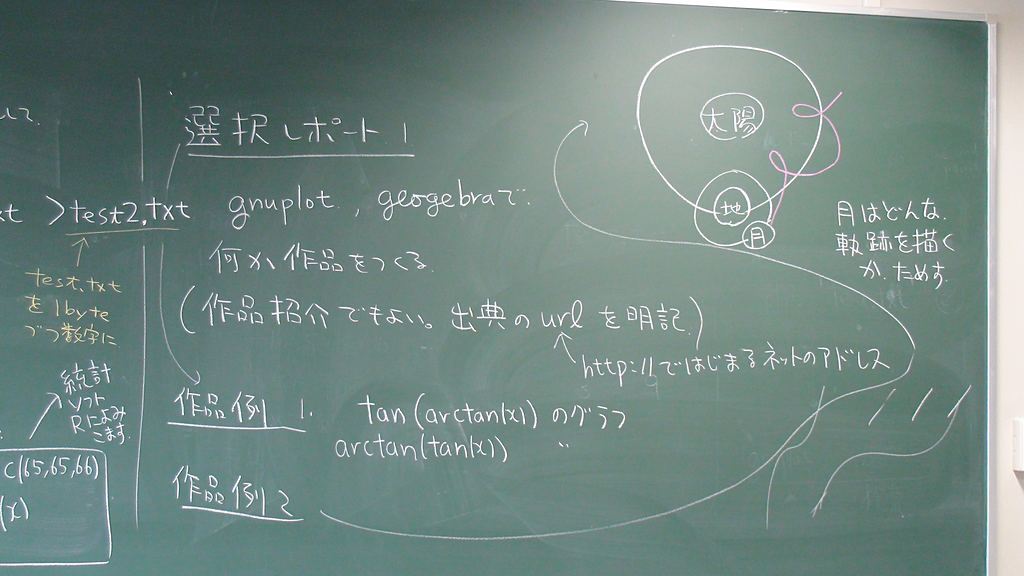 して.
xt >test2.txt
test.txt
を 1byte
づつ数字に
統計
ソフト
Rによみ
こます.
c(65,65,66)
(x)
選択レポート 1
gnuplot. , geogebraで.
何か、作品をつくる.
(作品紹介でもよい。出典の url を明記)
http://ではじまるネットのアドレス
作品例 1. tan(arctan(x)) のグラフ
arctan(tan(x)) 〃
作品例 2
太陽
地
月
月はどんな.
軌跡を描く
か.ためす.